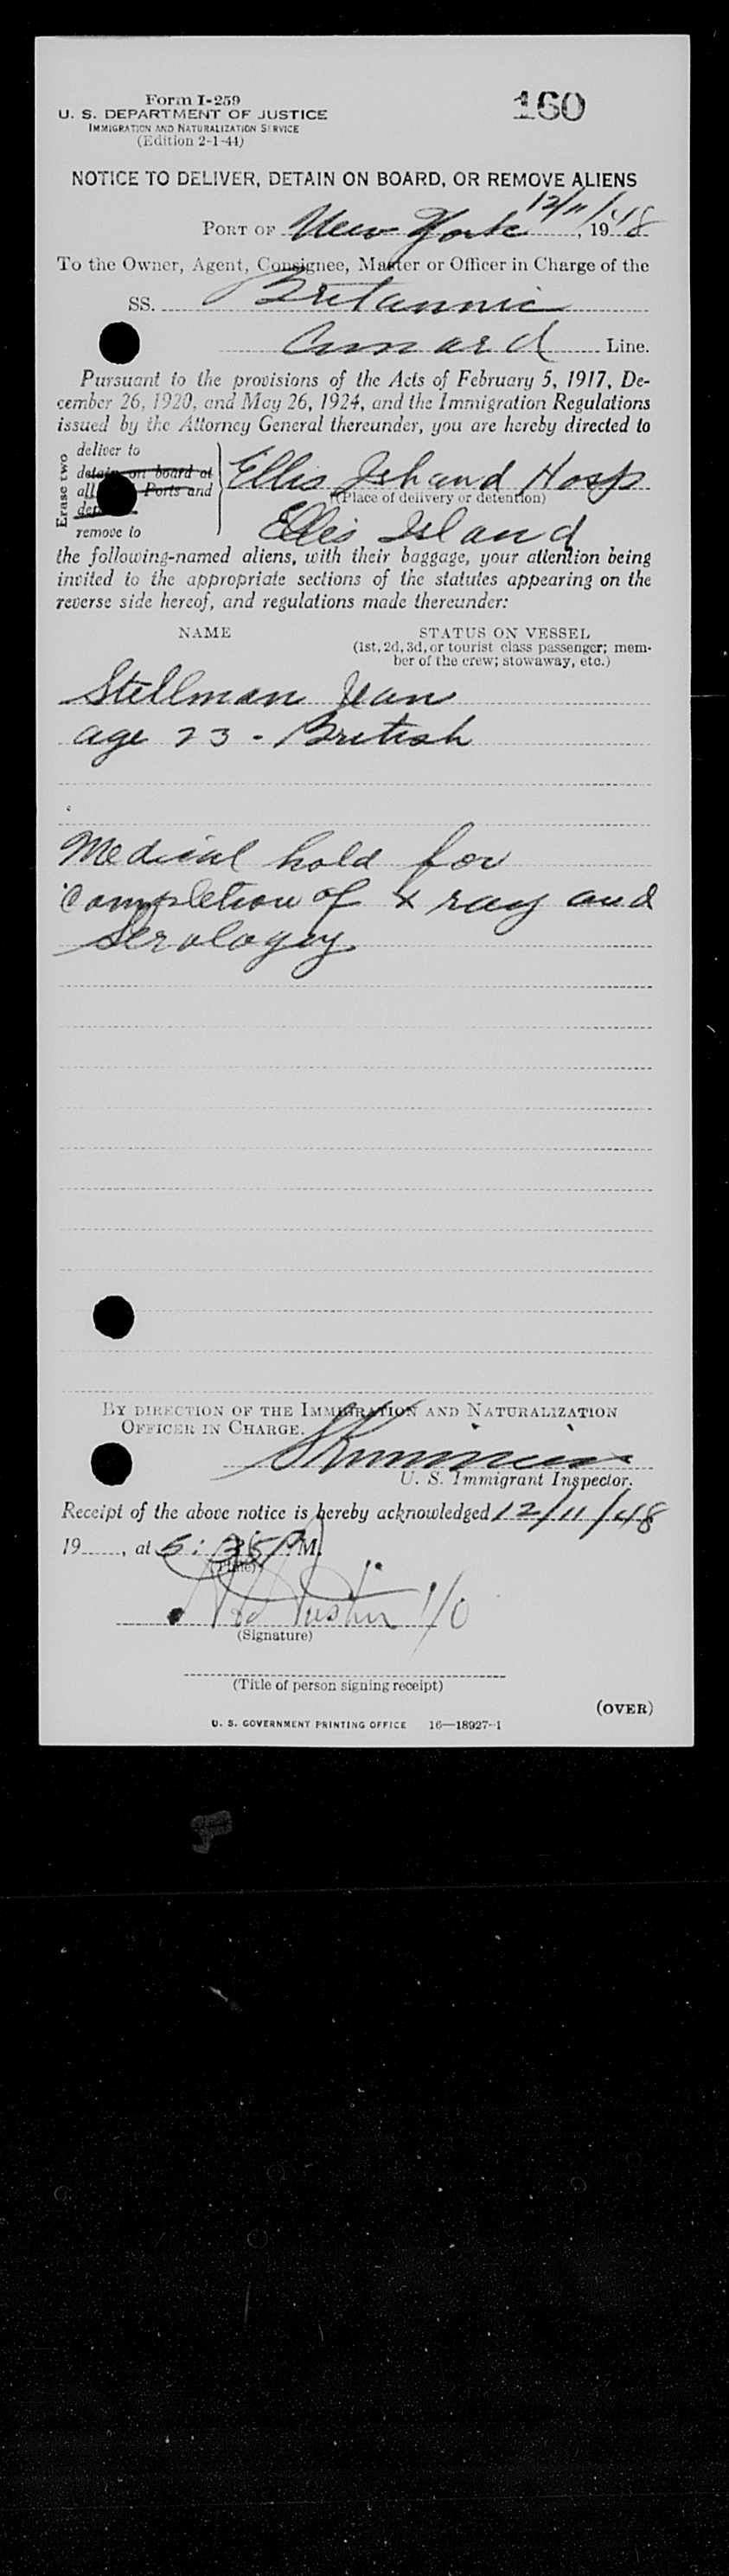 Form I-259
160
U. S. DEPARTMENT OF JUSTICE
IMMIGRATION AND NATURALIZATION SERVICE
(Edition 2-1-44)
NOTICE TO DELIVER, DETAIN ON BOARD, OR REMOVE ALIENS
12/11/48
PORT OF New York, 19
To the Owner, Agent, Consignee, Master or Officer in Charge of the
SS. Britannic
Cunard Line.
Pursuant to the provisions of the Acts of February 5, 1917, De-
cember 26, 1920, and May 26, 1924, and the Immigration Regulations
issued by the Attorney General thereunder, you are hereby directed to
Erase two
deliver to
detain on board at
all Ports and
remove to
Ellis Island Hosp
(Place of delivery or detention)
Ellis Island
the following-named aliens, with their baggage, your attention being
invited to the appropriate sections of the statutes appearing on the
reverse side hereof, and regulations made thereunder:
NAME STATUS ON VESSEL
(1st, 2d, 3d, or tourist class passenger; mem-
ber of the crew; stowaway, etc.)
Stellman Jean
age 23 - British
Medical hold for
completion of x ray and
Serology
BY DIRECTION OF THE IMMIGRATION AND NATURALIZATION
OFFICER IN CHARGE.
U. S. Immigrant Inspector.
Receipt of the above notice is hereby acknowledged 12/11/48
19, at 5:35 P M.
(Time)
(Signature)
(Title of person signing receipt)
(OVER)
U. S. GOVERNMENT PRINTING OFFICE 16—18927-1